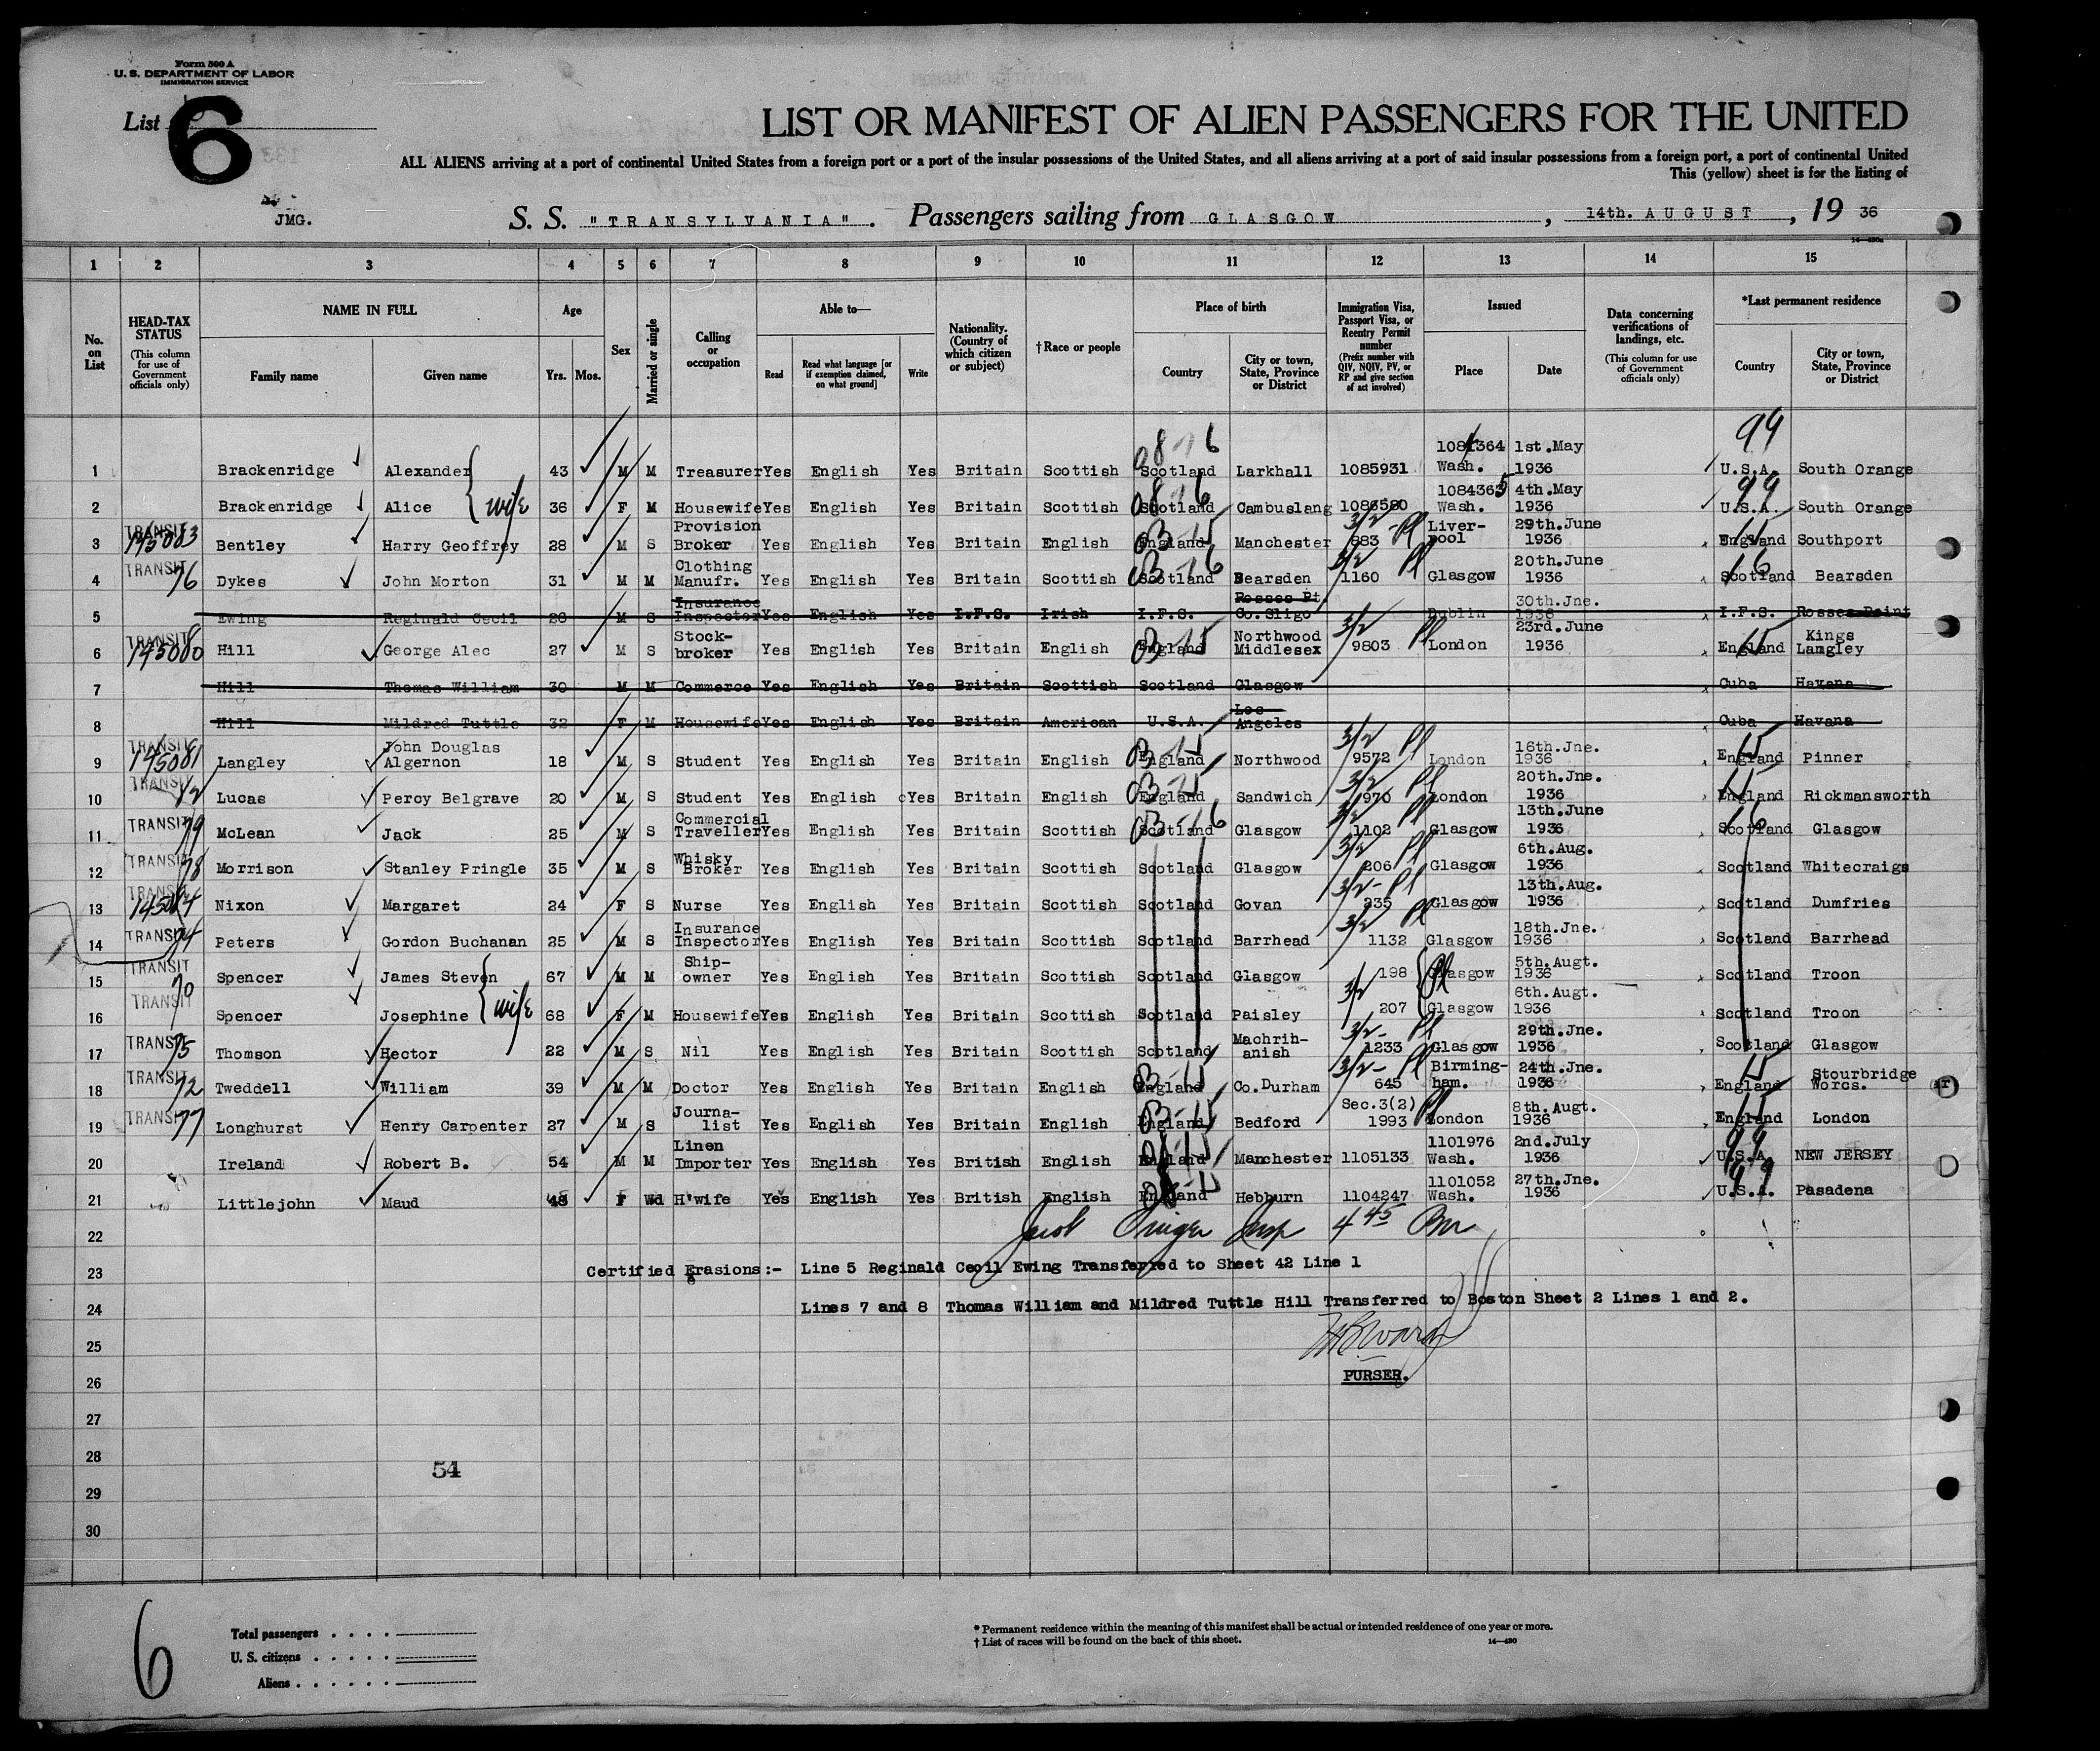 Form 500 A
U. S. DEPARTMENT OF LABOR
IMMIGRATION SERVICE
List 6
LIST OR MANIFEST OF ALIEN PASSENGERS FOR THE UNITED
ALL ALIENS arriving at a port of continental United States from a foreign port or a port of the insular possessions of the United States, and all aliens arriving at a port of said insular possessions from a foreign port, a port of continental United
This (yellow) sheet is for the listing of
JMG.
S. S. "TRANSYLVANIA". Passengers sailing from GLASGOW, 14th. AUGUST, 19 36
1 2 3 4 5 6 7 8 9 10 11 12 13 14 15
No. on List
HEAD-TAX STATUS (This column for use of Government officials only)
NAME IN FULL Family name Given name
Age Yrs. Mos.
Sex
Married or single
Calling or occupation
Able to— Read Read what language [or if exemption claimed, on what ground] Write
Nationality. (Country of which citizen or subject)
†Race or people
Place of birth Country City or town, State, Province or District
Immigration Visa, Passport Visa, or Reentry Permit number (Prefix number with QIV, NQIV, PV, or RP and give section of act involved)
Issued Place Date
Data concerning verifications of landings, etc. (This column for use of Government officials only)
*Last permanent residence Country City or town, State, Province or District
1 Brackenridge Alexander 43 M M Treasurer Yes English Yes Britain Scottish Scotland Larkhall 1085931 Wash. 1st.May 1936 99 U.S.A. South Orange
2 Brackenridge Alice wife 36 F M Housewife Yes English Yes Britain Scottish Scotland Cambuslang Wash. 4th.May 1936 99 U.S.A. South Orange
3 TRANSIT 145083 Bentley Harry Geoffrey 28 M S Provision Broker Yes English Yes Britain English England Manchester 3/2 Pl 883 Liverpool 29th.June 1936 England Southport
4 TRANSIT 76 Dykes John Morton 31 M M Clothing Manufr. Yes English Yes Britain Scottish Scotland Bearsden 3/2 Pl 1160 Glasgow 20th.June 1936 Scotland Bearsden
5 Ewing Reginald Cecil 28 M S Insurance Inspector Yes English Yes I.F.S. Irish I.F.S. Rosses Pt. Co.Sligo Dublin 30th.Jne. 1936 I.F.S. Rosses Point
6 TRANSIT 145080 Hill George Alec 27 M S Stock-broker Yes English Yes Britain English England Northwood Middlesex 3/2 Pl 9803 London 23rd.June 1936 England Kings Langley
7 Hill Thomas William 30 M M Commerce Yes English Yes Britain Scottish Scotland Glasgow Cuba Havana
8 Hill Mildred Tuttle 32 F M Housewife Yes English Yes Britain American U.S.A. Los Angeles Cuba Havana
9 TRANSIT 145081 Langley John Douglas Algernon 18 M S Student Yes English Yes Britain English England Northwood 3/2 Pl 9572 London 16th.Jne. 1936 England Pinner
10 TRANSIT Lucas Percy Belgrave 20 M S Student Yes English Yes Britain English England Sandwich 3/2 Pl 970 London 20th.Jne. 1936 England Rickmansworth
11 TRANSIT 79 McLean Jack 25 M S Commercial Traveller Yes English Yes Britain Scottish Scotland Glasgow 3/2 Pl 1102 Glasgow 13th.June 1936 16 Scotland Glasgow
12 TRANSIT 78 Morrison Stanley Pringle 35 M S Whisky Broker Yes English Yes Britain Scottish Scotland Glasgow 3/2 Pl 206 Glasgow 6th.Aug. 1936 Scotland Whitecraigs
13 TRANSIT Nixon Margaret 24 F S Nurse Yes English Yes Britain Scottish Scotland Govan 3/2 - Pl 235 Glasgow 13th.Aug. 1936 Scotland Dumfries
14 TRANSIT 74 Peters Gordon Buchanan 25 M S Insurance Inspector Yes English Yes Britain Scottish Scotland Barrhead 3/2 Pl 1132 Glasgow 18th.Jne. 1936 Scotland Barrhead
15 TRANSIT Spencer James Steven 67 M M Ship-owner Yes English Yes Britain Scottish Scotland Glasgow 198 Pl Glasgow 5th.Augt. 1936 Scotland Troon
16 TRANSIT 70 Spencer Josephine wife 68 F M Housewife Yes English Yes Britain Scottish Scotland Paisley 3/2 207 Glasgow 6th.Augt. 1936 Scotland Troon
17 TRANSIT 75 Thomson Hector 22 M S Nil Yes English Yes Britain Scottish Scotland Machrih-anish 3/2 - Pl 1233 Glasgow 29th.Jne. 1936 Scotland Glasgow
18 TRANSIT 72 Tweddell William 39 M M Doctor Yes English Yes Britain English England Co.Durham 3/2 - Pl 645 Birming-ham. 24th.Jne. 1936 England Stourbridge Worcs.
19 TRANSIT 77 Longhurst Henry Carpenter 27 M S Journa-list Yes English Yes Britain English England Bedford Sec.3(2) Pl 1993 London 8th.Augt. 1936 England London
20 Ireland Robert B. 54 M M Linen Importer Yes English Yes British English England Manchester 1105133 1101976 Wash. 2nd.July 1936 99 U.S.A. NEW JERSEY
21 Littlejohn Maud 48 F Wd H'wife Yes English Yes British English England Hebburn 1104247 1101052 Wash. 27th.Jne. 1936 99 U.S.A. Pasadena
22 Jacob Insp 4 45 Pm
23 Certified Erasions:- Line 5 Reginald Cecil Ewing Transferred to Sheet 42 Line 1
24 Lines 7 and 8 Thomas William and Mildred Tuttle Hill Transferred to Boston Sheet 2 Lines 1 and 2.
25
26 PURSER.
27
28 54
29
30
6
Total passengers
U. S. citizens
Aliens
* Permanent residence within the meaning of this manifest shall be actual or intended residence of one year or more.
† List of races will be found on the back of this sheet.
14—430